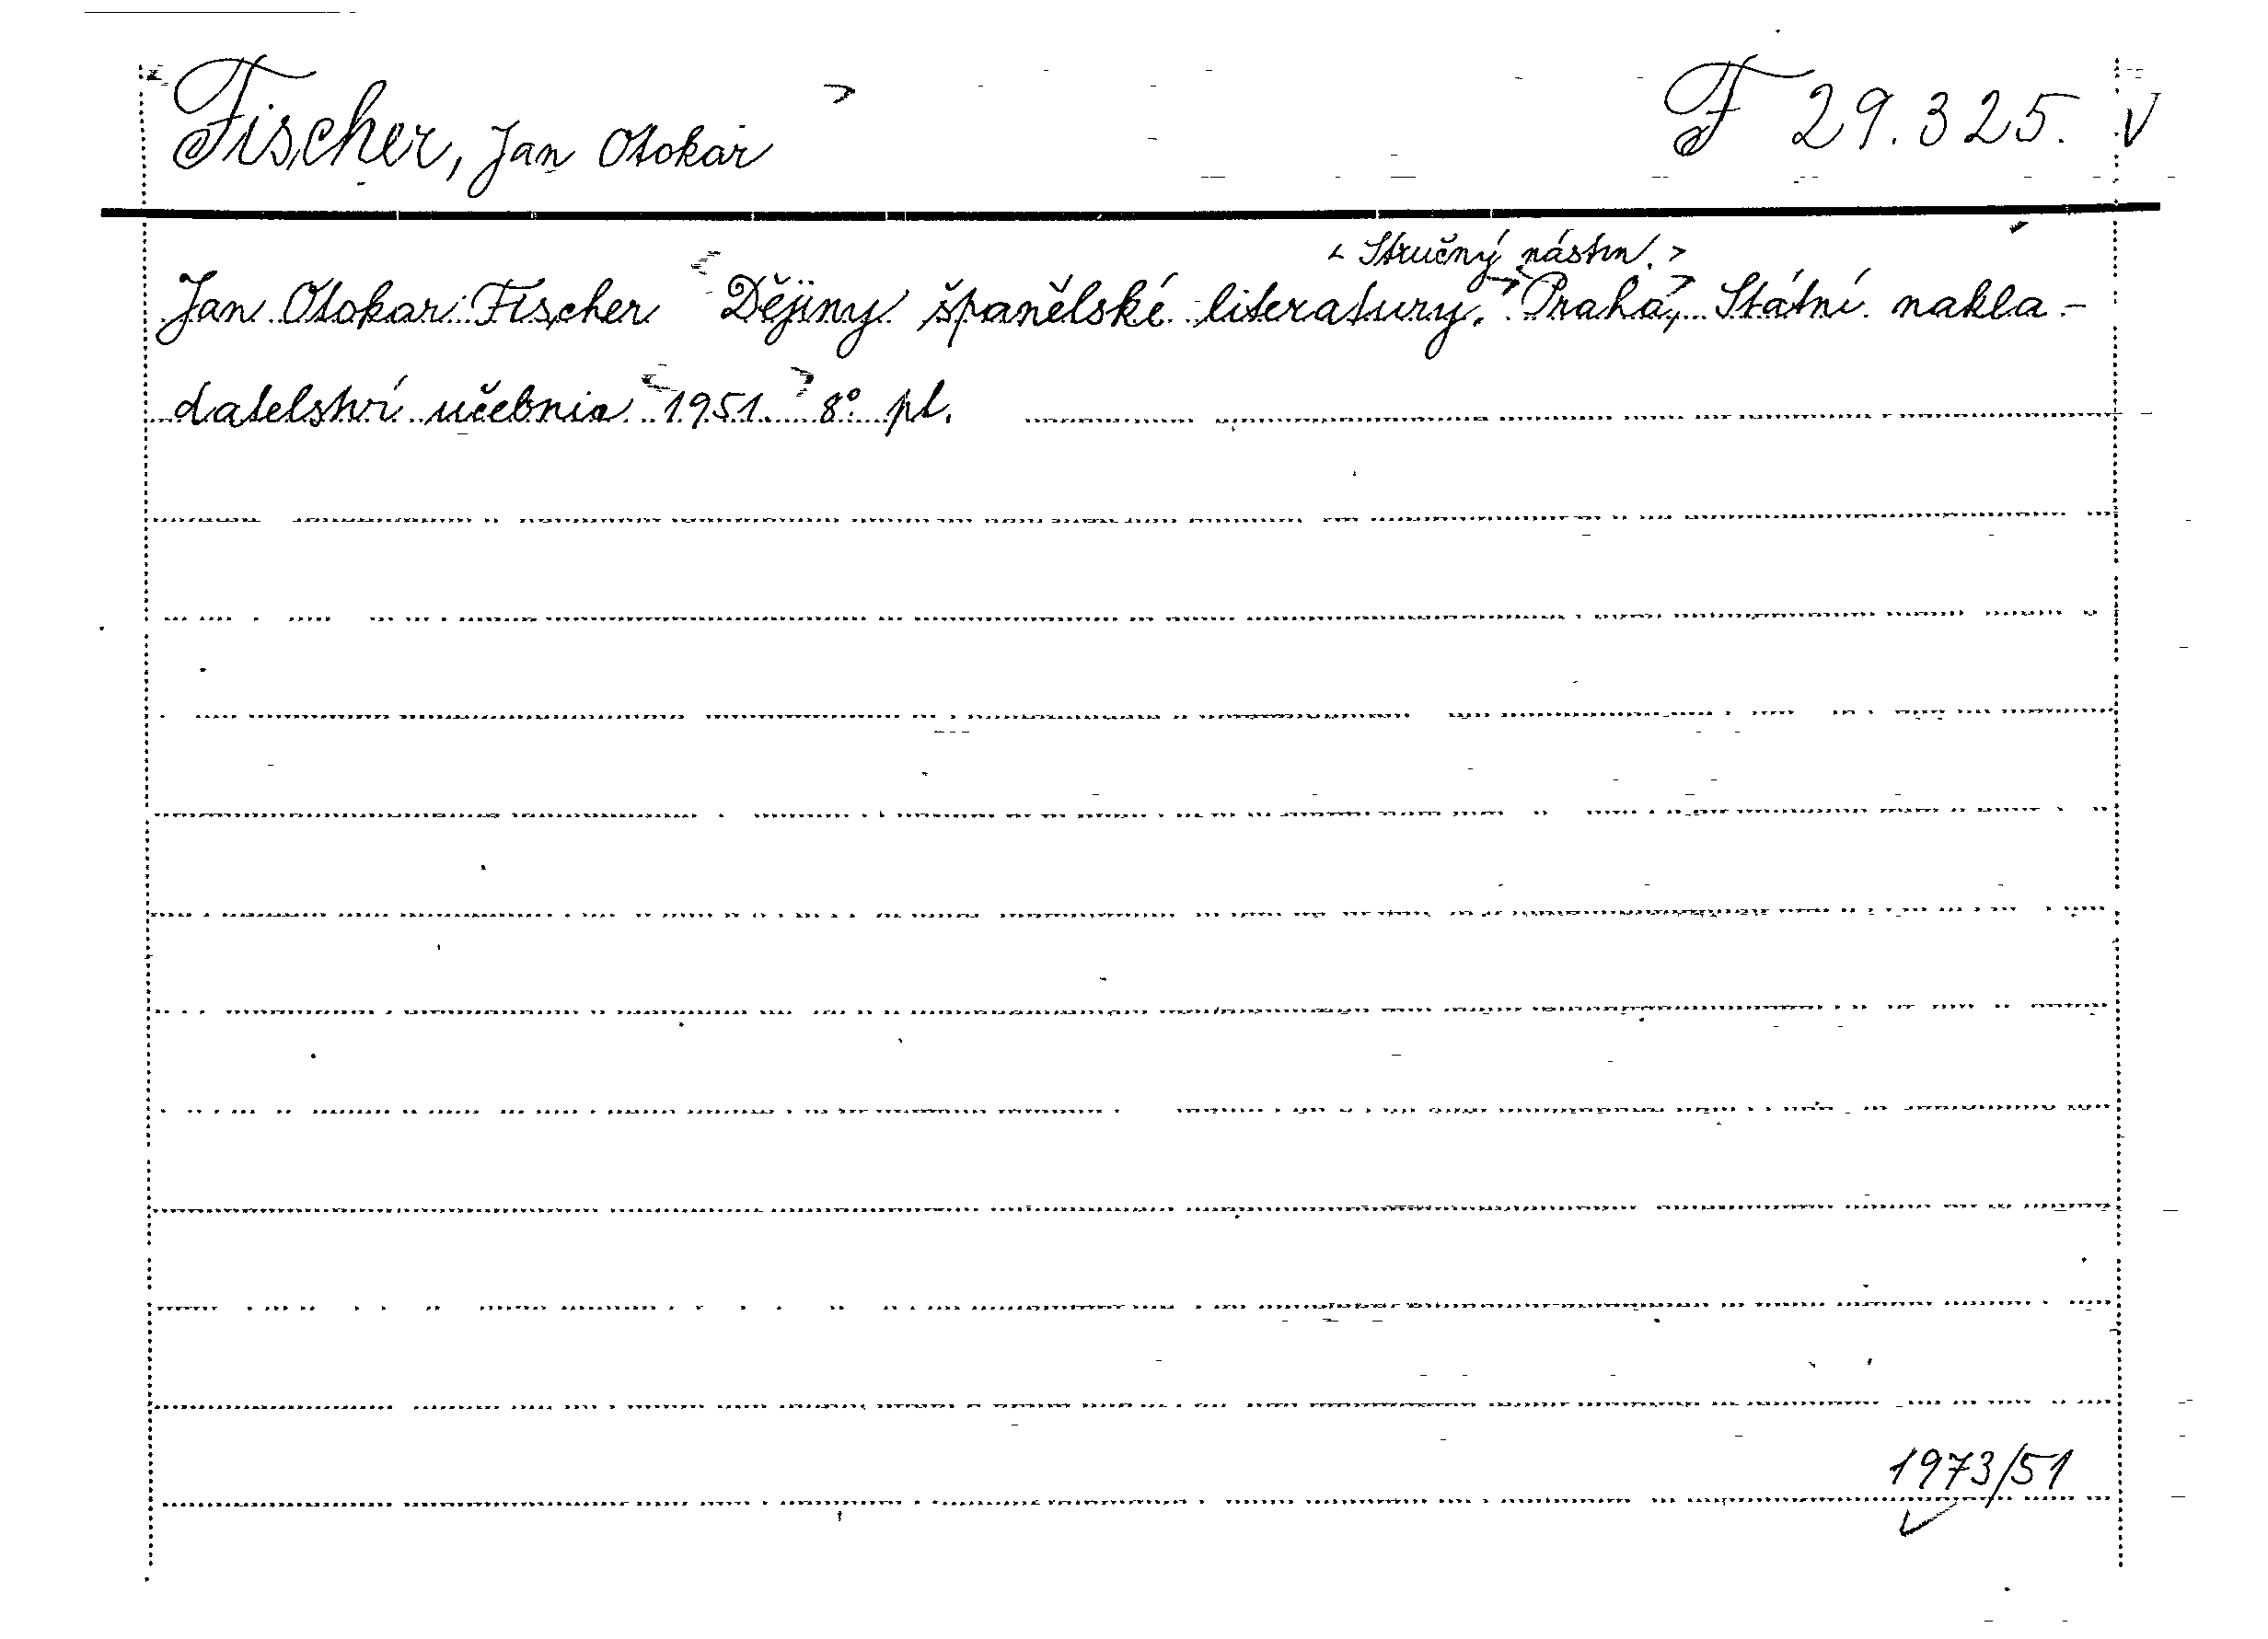 Fischer, Jan Otokar F 29.325. V
< Stručný nástin. >
Jan Otokar Fischer Dějiny španělské literatury. Praha, Státní nakla-
datelství učebnic 1951. 8° pl.
1973/51